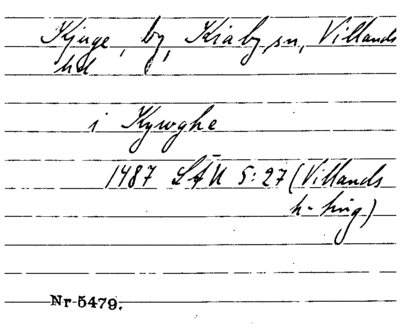 Kjuge, by, Kiaby sn, Villands
hd
i Kywghe
1487 LÄU 5:27 (Villands
h-ting)
Nr 5479.